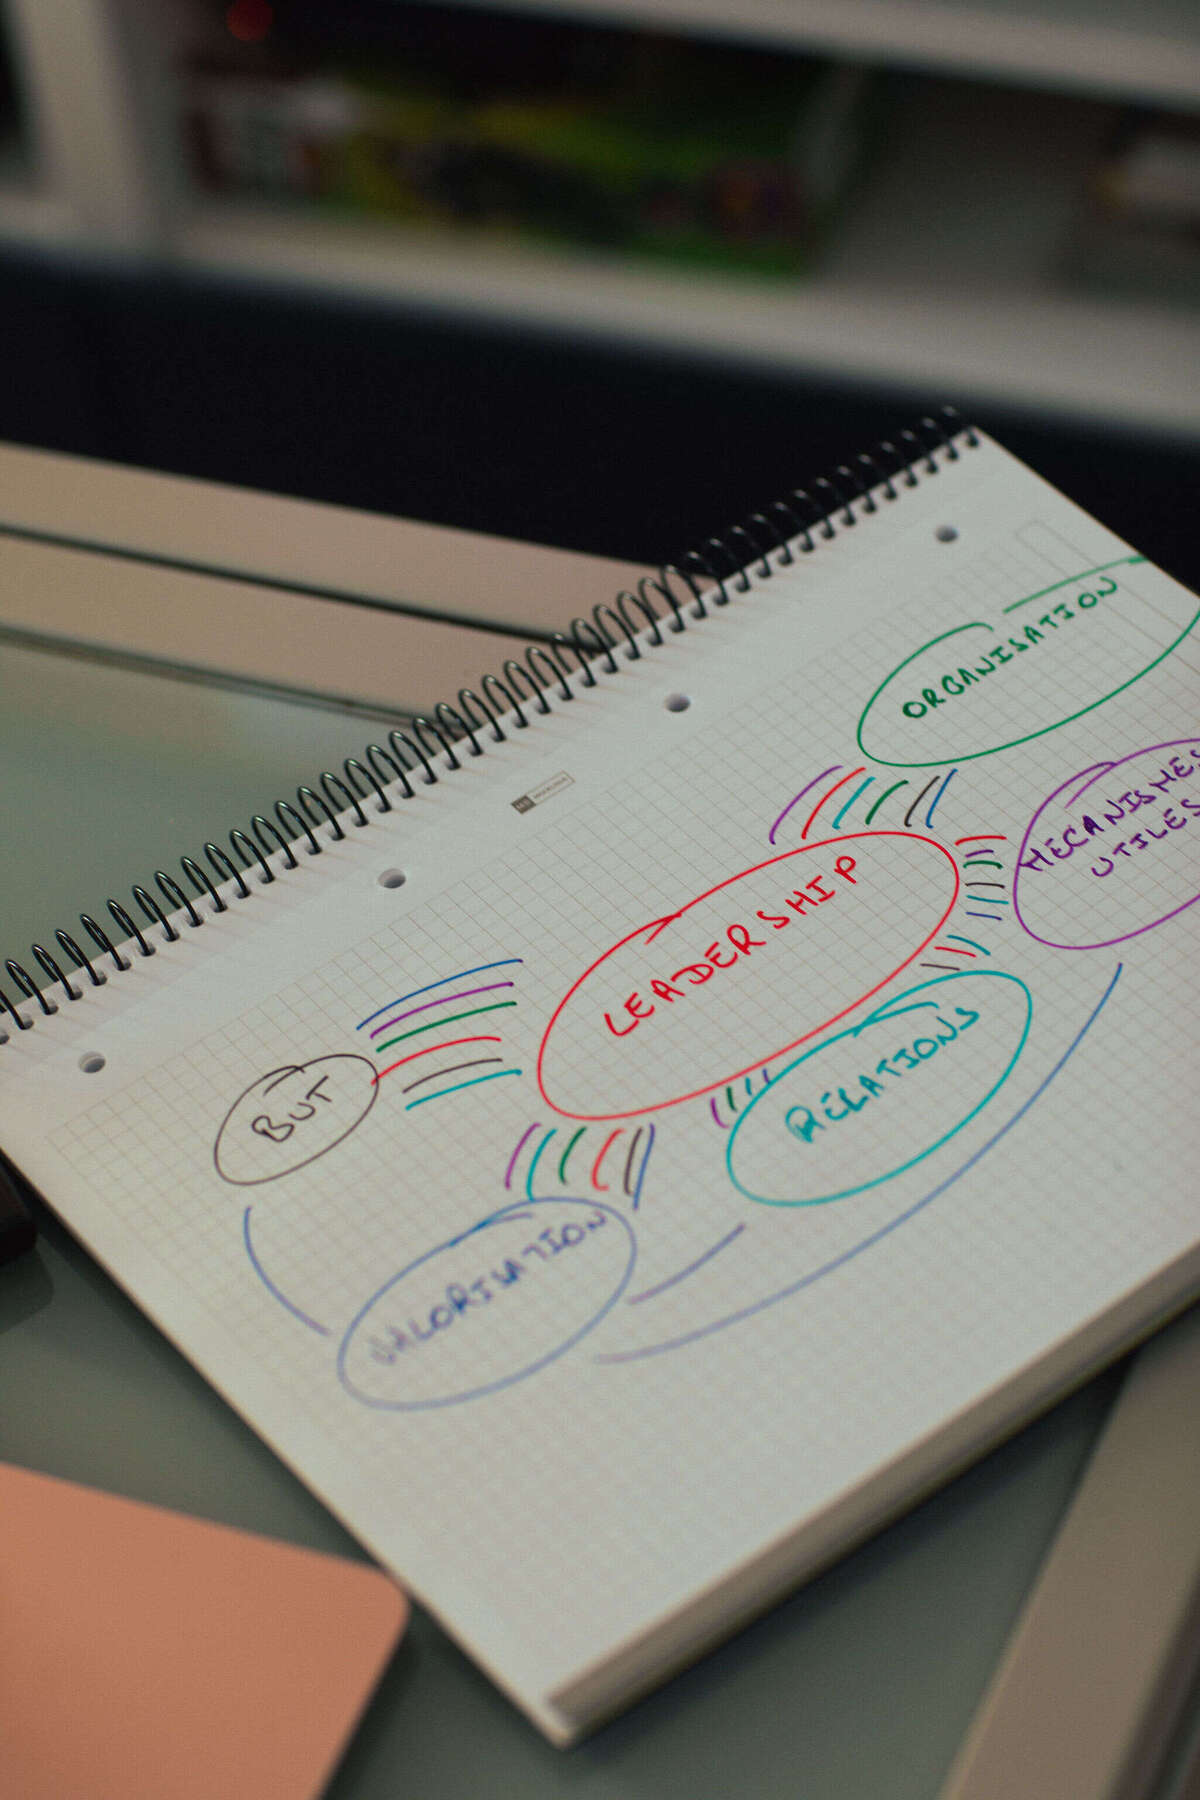 ORGANISATION
MÉCANISMES
UTILES
LEADERSHIP
RELATIONS
BUT
VALORISATION